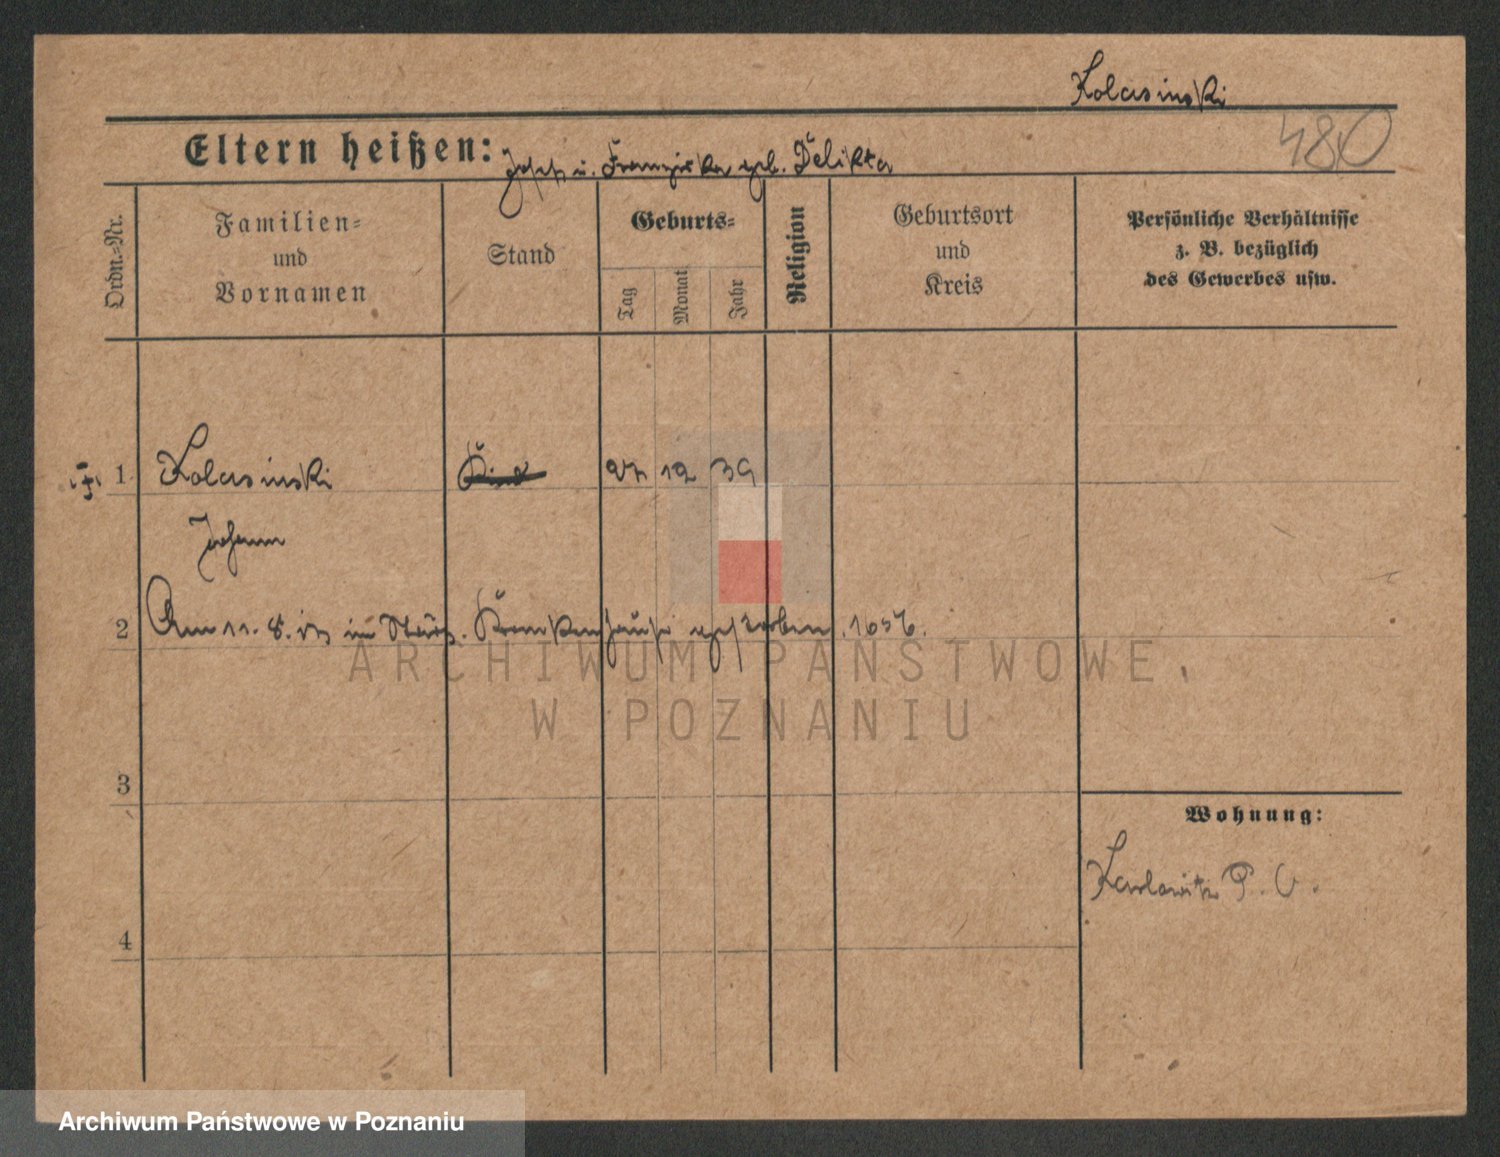 Kolasinski
480
Eltern heißen: Josef u. Franziska geb. Delikta
Ordn.-Nr.
Familien-
und
Vornamen
Stand
Geburts-
Tag
Monat
Jahr
Religion
Geburtsort
und
Kreis
Persönliche Verhältnisse
z. B. bezüglich
des Gewerbes usw.
1 Kolasinski Kind 27 12 39
Johann
2 Am 11. 8. im Städt. Krankenhause gestorben.
3
4
Wohnung:
P.
ARCHIWUM PAŃSTWOWE
W POZNANIU
Archiwum Państwowe w Poznaniu